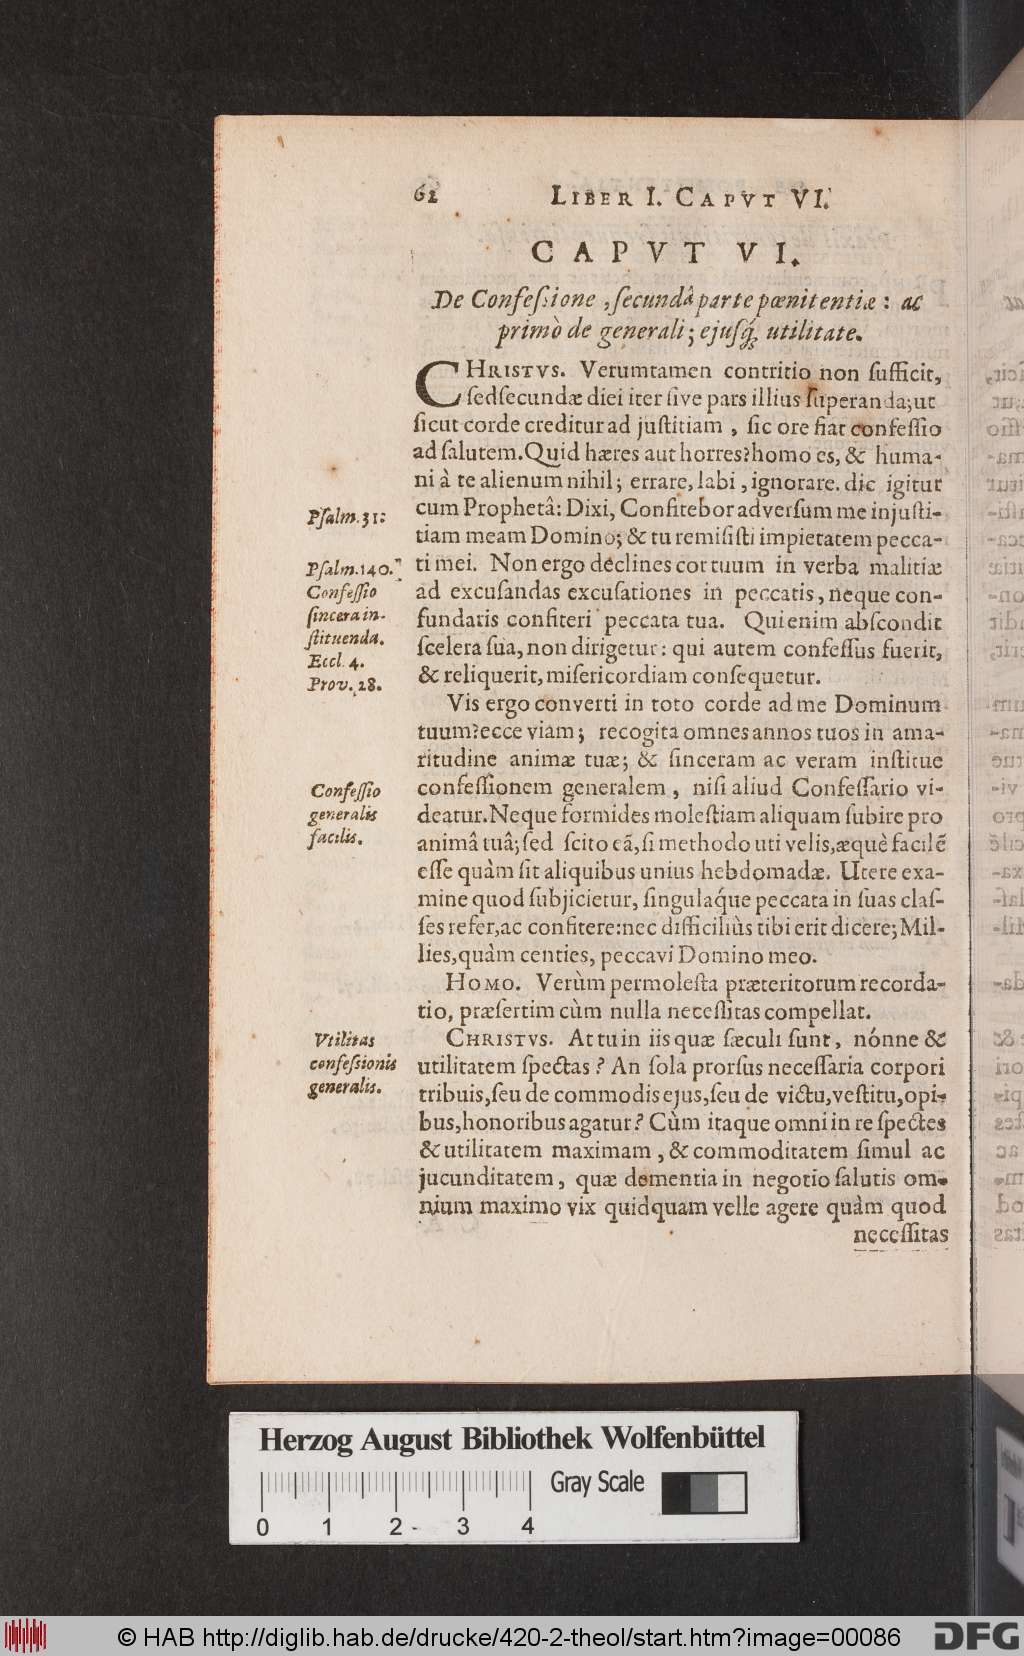 62 LIBER I. CAPVT VI.
CAPVT VI.
De Confeſſione, ſecundâ parte pœnitentiæ: ac
primò de generali; ejuſq́; utilitate.
CHRISTVS. Verumtamen contritio non ſufficit,
ſed ſecundæ diei iter ſive pars illius ſuperanda; ut
ſicut corde creditur ad juſtitiam, ſic ore fiat confeſſio
ad ſalutem. Quid hæres aut horres? homo es, & huma-
ni à te alienum nihil; errare, labi, ignorare. dic igitur
cum Prophetâ: Dixi, Confitebor adverſum me injuſti-
tiam meam Domino; & tu remiſiſti impietatem pecca-
ti mei. Non ergo declines cor tuum in verba malitiæ
ad excuſandas excuſationes in peccatis, neque con-
fundaris confiteri peccata tua. Qui enim abſcondit
ſcelera ſua, non dirigetur: qui autem confeſſus fuerit,
& reliquerit, miſericordiam conſequetur.
Pſalm. 31:
Pſalm. 140.
Confeſſio
ſincera in-
ſtituenda.
Eccl. 4.
Prov. 28.
Vis ergo converti in toto corde ad me Dominum
tuum? ecce viam; recogita omnes annos tuos in ama-
ritudine animæ tuæ; & ſinceram ac veram inſtitue
confeſſionem generalem, niſi aliud Confeſſario vi-
deatur. Neque formides moleſtiam aliquam ſubire pro
animâ tuâ; ſed ſcito eã, ſi methodo uti velis, æquè facilẽ
eſſe quàm ſit aliquibus unius hebdomadæ. Utere exa-
mine quod ſubjicietur, ſingulaq́ue peccata in ſuas claſ-
ſes refer, ac confitere: nec difficiliùs tibi erit dicere; Mil-
lies, quàm centies, peccavi Domino meo.
Confeſſio
generalis
facilis.
HOMO. Verùm permoleſta præteritorum recorda-
tio, præſertim cùm nulla neceſſitas compellat.
CHRISTVS. At tu in iis quæ ſæculi ſunt, nónne &
utilitatem ſpectas? An ſola prorſus neceſſaria corpori
tribuis, ſeu de commodis ejus, ſeu de victu, veſtitu, opi-
bus, honoribus agatur? Cùm itaque omni in re ſpectes
& utilitatem maximam, & commoditatem ſimul ac
jucunditatem, quæ dementia in negotio ſalutis om-
nium maximo vix quidquam velle agere quàm quod
neceſſitas
Vtilitas
confeſsionis
generalis.
Herzog August Bibliothek Wolfenbüttel
Gray Scale
0 1 2 3 4
© HAB http://diglib.hab.de/drucke/420-2-theol/start.htm?image=00086
DFG